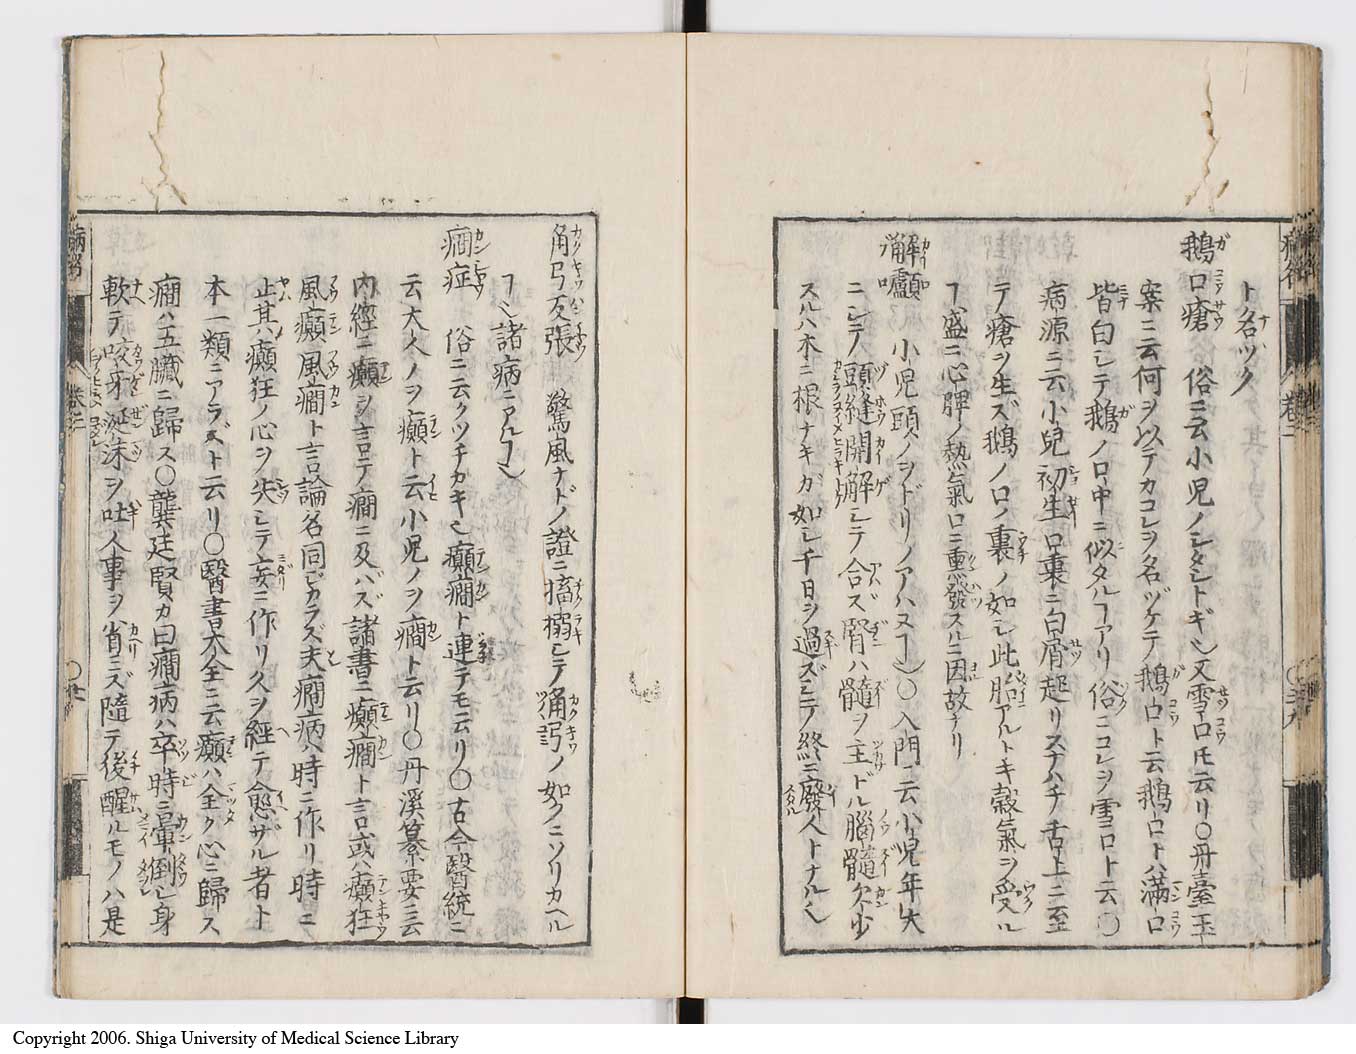 ト名ツク
鵝口瘡 俗ニ云小児ノシタシトギ也又雪口トモ云リ〇丹臺玉
案ニ云何ヲ以テカコレヲ名ヅケテ鵝口ト云鵝口トハ満口
皆白シテ鵝ノ口中ニ似タルヿアリ俗ニコレヲ雪口ト云〇
病源ニ云小兒初生口裏ニ白屑起リスナハチ舌上ニ至
テ瘡ヲ生ズ鵝ノ口ノ裏ノ如シ此胎アルトキ穀氣ヲ受ル
ヿ盛ニ心脾ノ熱氣口ニ重發スルニ因故ナリ
解顱 小児頭ノヲドリノアハヌヿ也〇入門ニ云小児年大
ニシテ頭縫開解シテ合ズ腎ハ髓ヲ主ドル腦髓欠少
スルハ木ニ根ナキガ如シ千日ヲ過ズシテ終ニ廢人トナル也
角弓反張 驚風ナドノ證ニ搐搦シテ角弓ノ如クニソリカヘル
ヿ也諸病ニアルヿ也
癇症 俗ニ云クツチカキ也癲癇ト連テモ云リ〇古今醫統ニ
云大人ノヲ癲ト云小児ノヲ癇ト云リ〇丹溪纂要ニ云
内經ニ癲ヲ言テ癇ニ及バズ諸書ニ癲癇ト言或ハ癲狂
風癲風癇ト言論名同ジカラズ夫癇病ハ時ニ作リ時ニ
止其ハ癲狂ノ心ヲ失シテ妄ニ作リ久ヲ經テ愈ザル者ト
本一類ニアラズト云リ〇醫書大全ニ云癲ハ全ク心ニ歸ス
癇ハ五臓ニ歸ス〇龔廷賢カ曰癇病ハ卒時ニ暈倒シ身
軟テ咬牙涎沫ヲ吐人事ヲ省ミズ隨テ後醒ルモノハ是
Copyright 2006. Shiga University of Medical Science Library